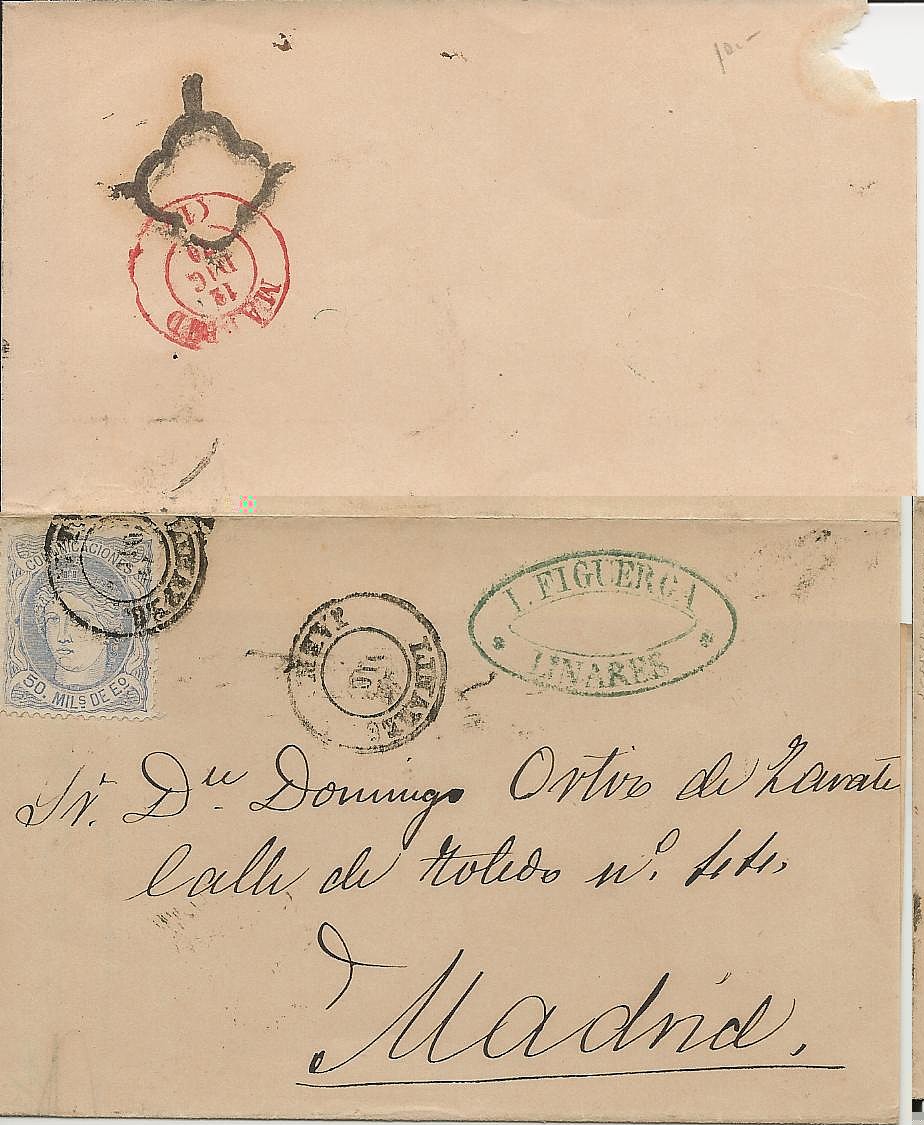 10.-
MADRID
12
DIC
(1)
COMUNICACIONES
50. MILS DE EO
LINARES
JAEN
LINARES
I. FIGUEROA
LINARES
Sr. Dn Domingo Ortiz de Zarate
Calle de Toledo no. 44.
Madrid.